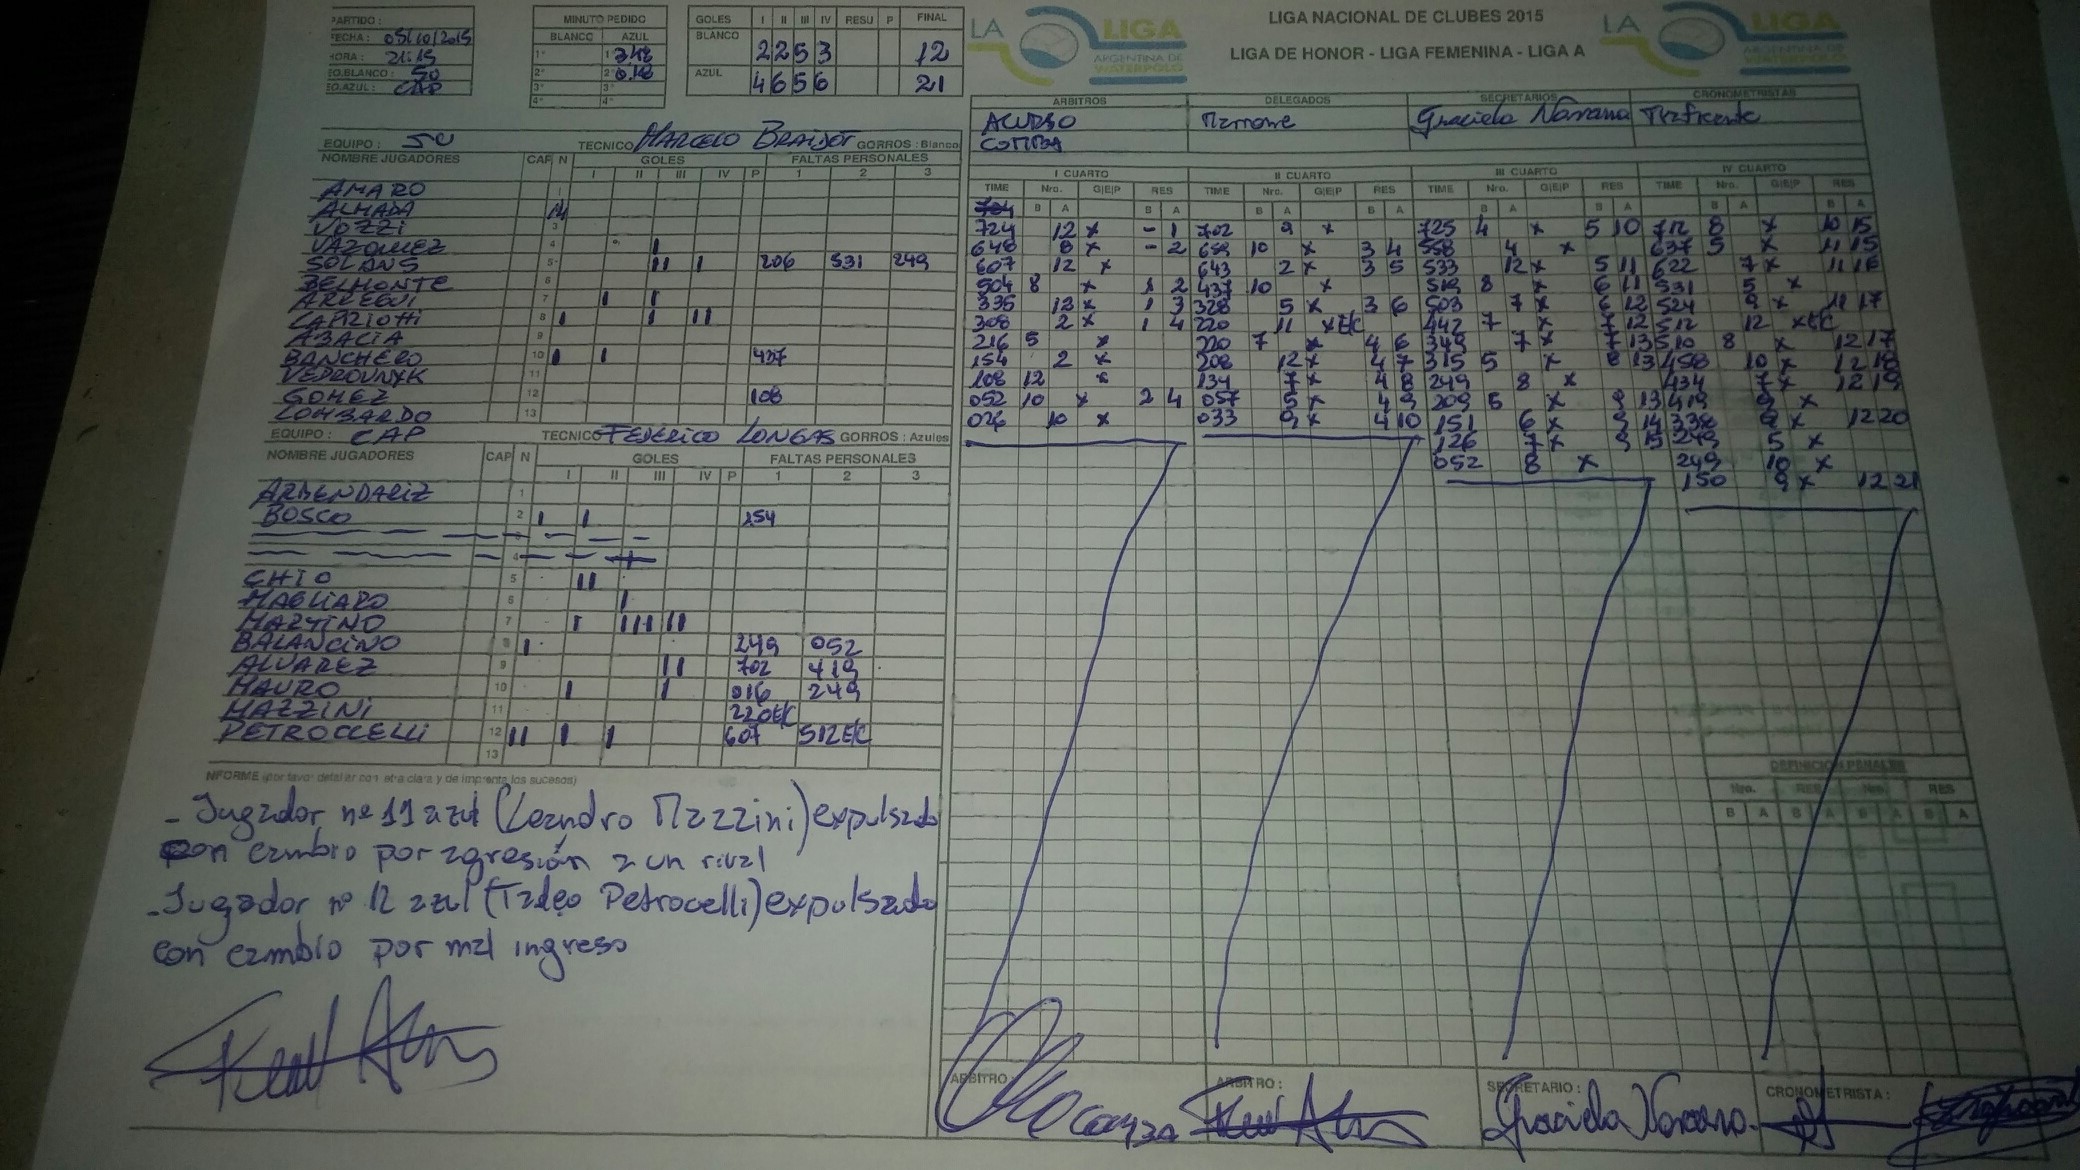 PARTIDO :
FECHA : 05/10/2015
HORA : 21:15
EQ.BLANCO : SO
EQ.AZUL : CAP
MINUTO PEDIDO
BLANCO AZUL
1° 1° 3.48
2° 2°
3° 3°
4° 4°
GOLES I II III IV RESU P FINAL
BLANCO 2 2 5 3 12
AZUL 4 6 5 6 21
LA LIGA ARGENTINA DE WATERPOLO
LIGA NACIONAL DE CLUBES 2015
LIGA DE HONOR - LIGA FEMENINA - LIGA A
LA LIGA ARGENTINA DE WATERPOLO
ARBITROS DELEGADOS SECRETARIOS CRONOMETRISTAS
ACURSO Graciela Navarro
EQUIPO : TECNICO MARCELO GORROS : Blanco
NOMBRE JUGADORES CAP N GOLES FALTAS PERSONALES
I II III IV P 1 2 3
AMARO 1
ALMADA
VOZZI 3
VAZQUEZ 4 I
SOLANS 5 II I 206 531 249
BELMONTE 6
ARREGUI 7 I I
CAPRIOTTI 8 I I II
ABACIA 9
BANCHERO 10 I I 437
11
GOMEZ 12 108
LOMBARDO 13
EQUIPO : CAP TECNICO FEDERICO LONGAS GORROS : Azules
NOMBRE JUGADORES CAP N GOLES FALTAS PERSONALES
I II III IV P 1 2 3
ARMENDARIZ 1
BOSCO 2 I I 154
3
4
CHIO 5 II
MAGLIARO 6 I
MARTINO 7 I III II
BALANCINO 8 I 249 052
ALVAREZ 9 II 702 419
MAURO 10 I I 016 249
MAZZINI 11 220EC
PETROCCELLI 12 II I I 607 512EC
13
I CUARTO
TIME Nro. G|E|P RES
B A B A
724 12 x - 1
648 8 x - 2
607 12 x
504 8 x 1 2
336 12 x 1 3
308 2 x 1 4
216 5 x
154 2 x
108 12 x
052 10 x 2 4
10 x
II CUARTO
TIME Nro. G|E|P RES
B A B A
702 9 x
10 x 3 4
643 2 x 3 5
437 10 x
328 5 x 3 6
220 11 x EC
220 7 x 4 6
208 12 x 4 7
134 7 x 4 8
057 5 x 4 9
033 9 x 4 10
III CUARTO
TIME Nro. G|E|P RES
B A B A
725 4 x 5 10
558 4 x
533 12 x 5 11
519 8 x 6 11
503 7 x 6 12
442 7 x 7 12
349 7 x 7 13
315 5 x 8 13
249 8 x
209 5 x 9 13
151 6 x 9 14
126 7 x 9 15
052 8 x
IV CUARTO
TIME Nro. G|E|P RES
B A B A
712 8 x 10 15
637 5 x 11 15
622 7 x 11 16
531 5 x
524 9 x 11 17
512 12 x EC
510 8 x 12 17
458 10 x 12 18
434 7 x 12 19
419 9 x
338 9 x 12 20
249 5 x
249 10 x
150 9 x 12 21
DEFINICION PENALES
Nro. RES Nro. RES
B A B A B A B A
INFORME (por favor detallar con letra clara y de imprenta los sucesos)
- Jugador nº 11 azul (Leandro Mazzini) expulsado
con cambio por agresión a un rival
- Jugador nº 12 azul (Tadeo Petrocelli) expulsado
con cambio por mal ingreso
ARBITRO : ARBITRO : SECRETARIO : Graciela Navarro CRONOMETRISTA :